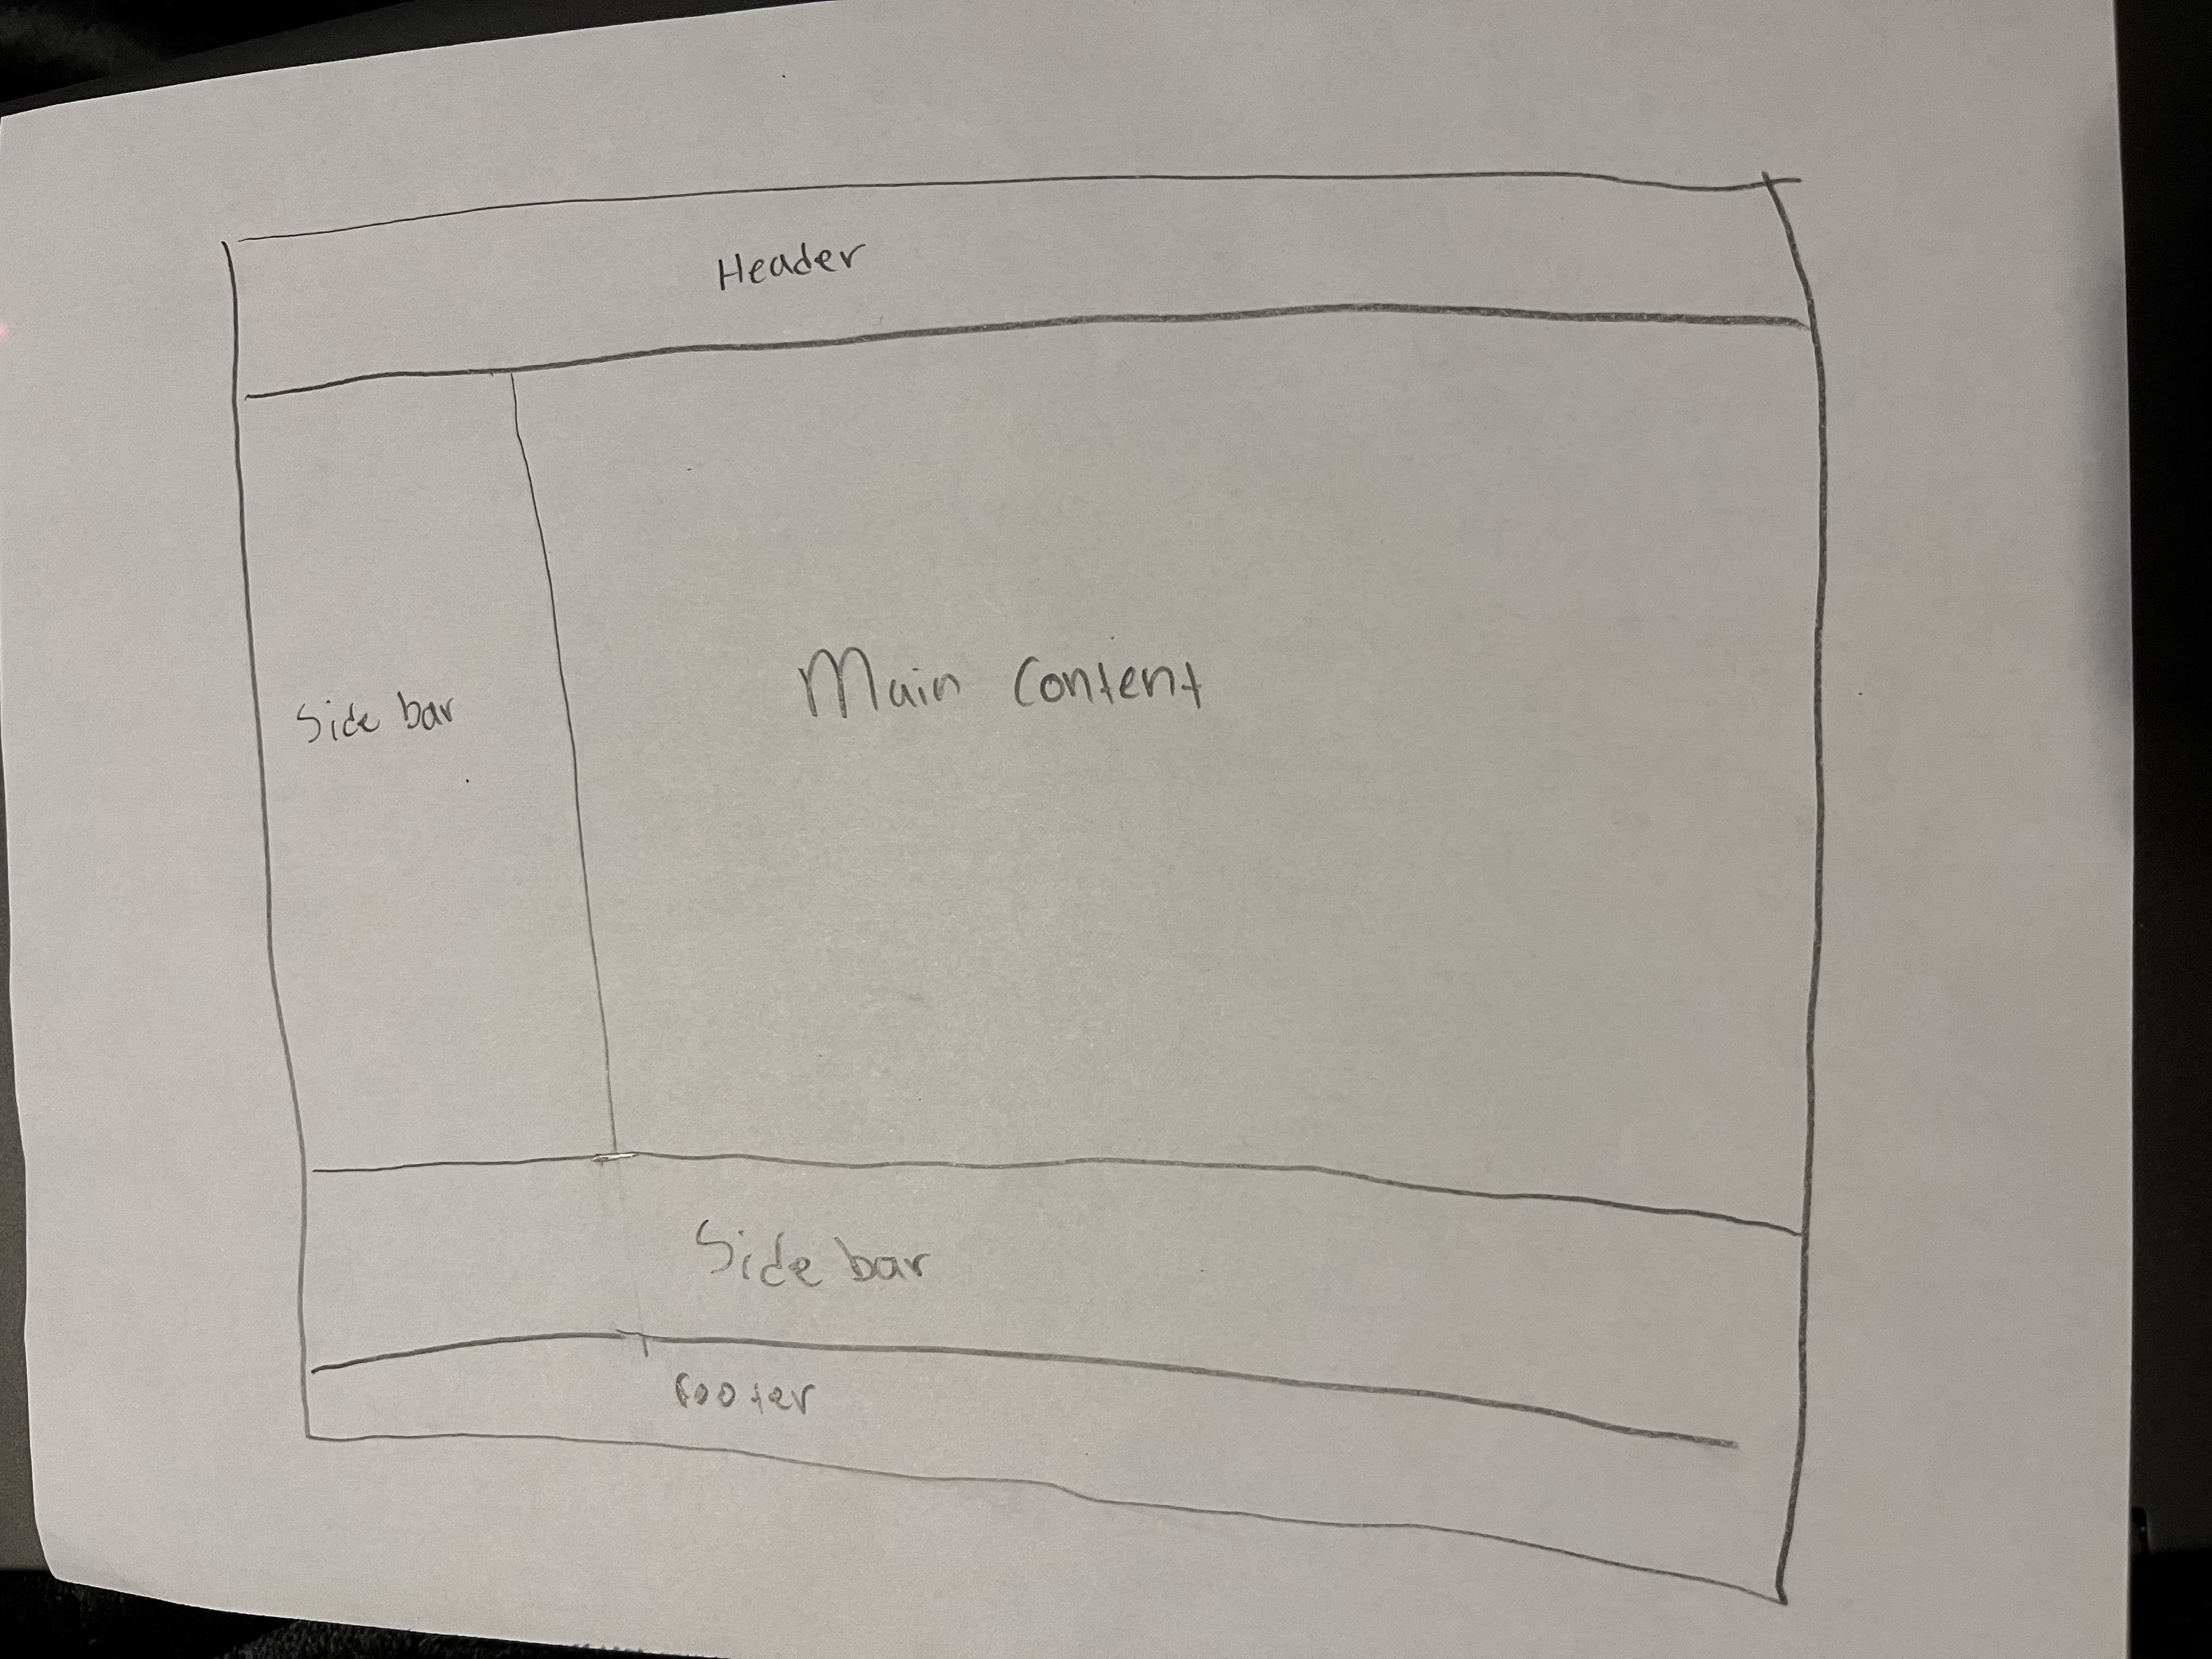 Header
Side bar
Main Content
Side bar
footer